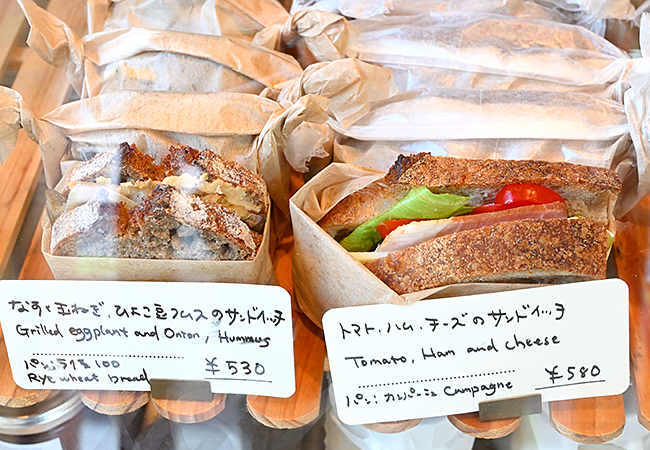 なすと玉ねぎ、ひよこ豆フムスのサンドイッチ
Grilled eggplant and Onion, Hummus
パン:ライ麦100
Rye wheat bread
¥530
トマト・ハム・チーズのサンドイッチ
Tomato, Ham and cheese
パン:カンパーニュ Campagne
¥580